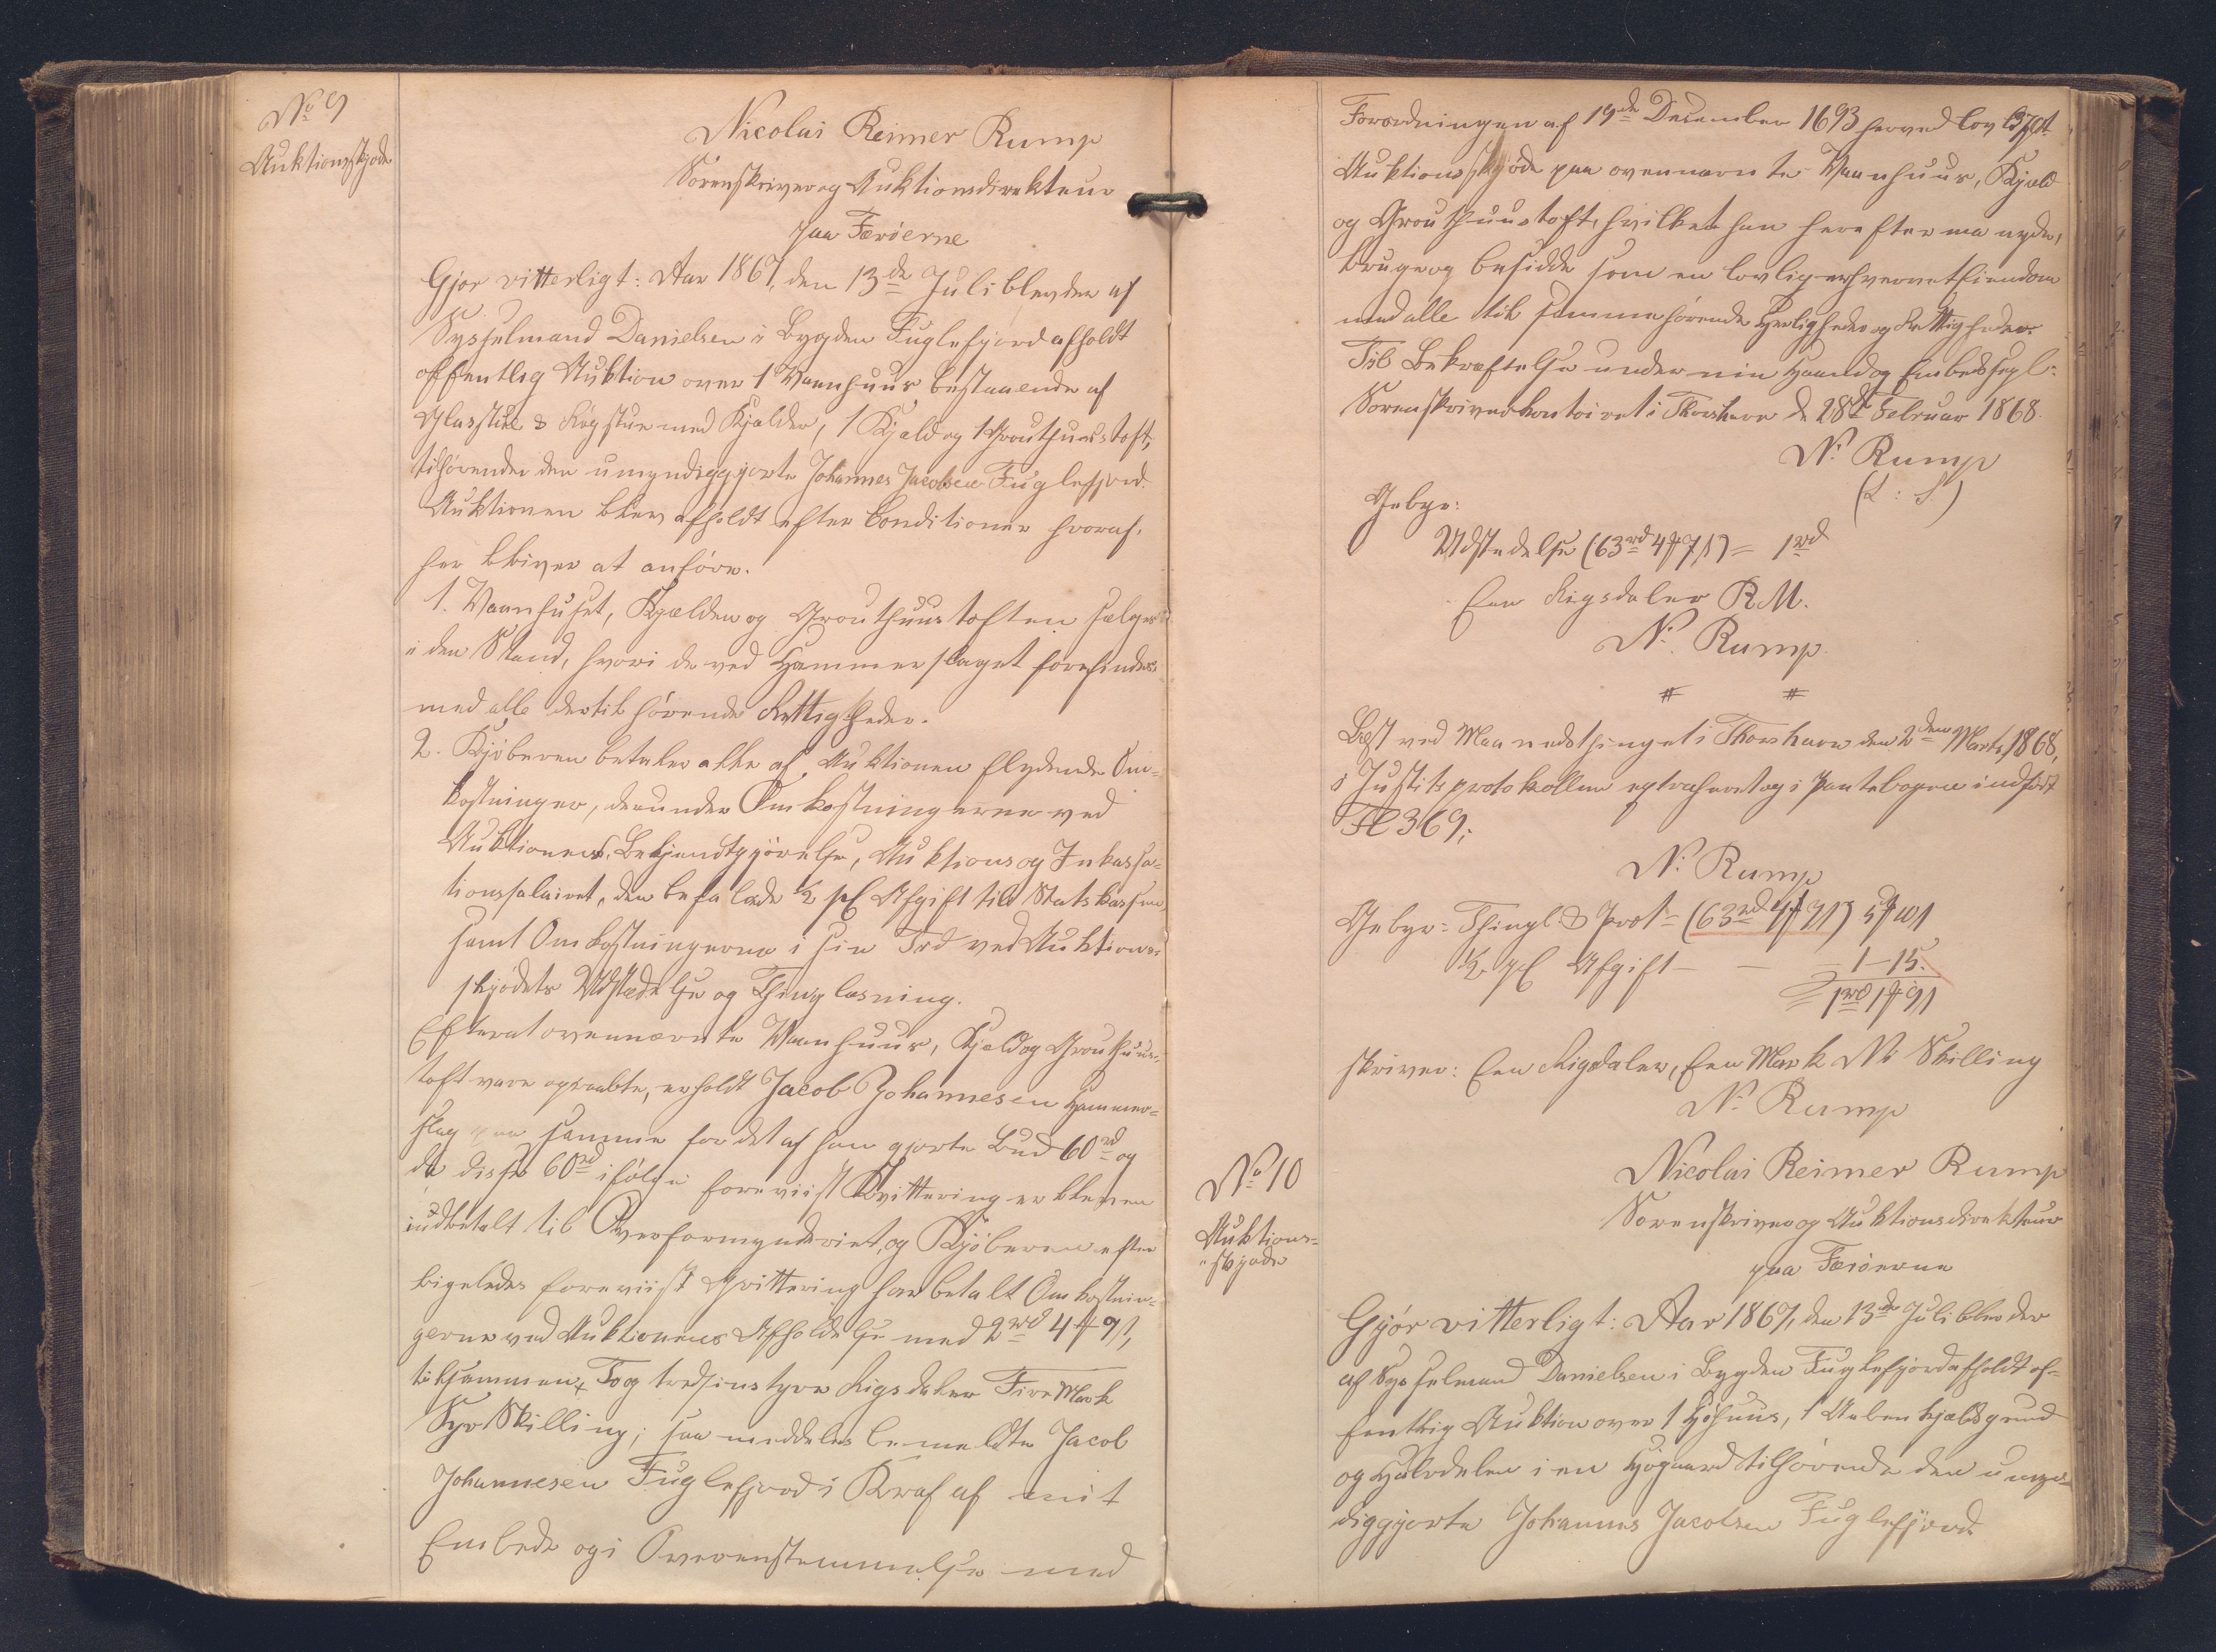 No 9
Auktionsskjøde
Nicolai Reimer Rump
Sorenskriver og Auktionsdirekteur
paa Færöerne
Gjør vitterligt: Aar 1867, den 13de Juli blev der af
Sysselmand Danielsen i Bygden Fuglefjord afholdt
offentlig Auktion over 1 Vaanhuus bestaaende af
Glasstue & Røgstue med Kjælder, 1 Kjald og 1 Grouthuustoft,
tilhørende den umyndiggjorte Johannes Jacobsen Fuglefjord.
Auktionen blev afholdt efter Conditioner hvoraf
her bliver at anføre.
1. Vaanhuset, Kjælden og Grouthuustoften sælges
i den Stand, hvori de ved Hammerslaget forefindes
med alle dertil hørende Rettigheder.
2. Kjøberen betaler alle af Auktionen flydende Om=
kostninger, derunder Omkostningerne ved
Auktionens Bekjendtgjørelse, Auktions og Inkassa=
tionssalairet, den befalede ½ pC Afgift til Statskassen,
samt Omkostningerne i sin Tid ved Auktions=
skjødets Udstædelse og Thinglæsning.
Efterat ovennævnte Vaanhuus, Kjald og Grouthuus=
toft vare opraabte, erholdt Jacob Johannesen Hammer=
slag paa samme for det af ham gjorte Bud 60rd og
da disse 60rd ifølge foreviist Qvittering er bleven
indbetalt til Overformynderiet, og Kjøberen efter
ligeledes foreviist Qvittering har betalt Omkostnin=
gerne ved Auktionens Afholdelse med 2rd 4# 9β,
tilsammen Tog tredsinstyve Rigsdaler Fire Mark
Syv Skilling; saa meddeles bemeldte Jacob
Johannesen Fuglefjord i Kraf af mit
Embede og i Overenstemmelse med
Forordningen af 19de December 1693 herved lovligt
Auktionsskjøde paa ovennævnte Vaanhuus, Kjald
og Grouthuustoft, hvilket han herefter maa nyde,
bruge og besidde som en lovlig erhvervet Eiendom
med alle til samme hørende Herligheder og Rettigheder.
Til Bekræftelse under min Haand og Embedssegl.
Sorenskriverkontoiret i Thorshavn d 28de Februar 1868.
N. Rump
(L : S)
Gebyr:
Udstedelse (63rd 4# 7β) = 1rd
Een Rigsdaler R.M.
N. Rump.
# #
Læst ved Maanedsthinget i Thorshavn den 2den Marts 1868,
i Justitsprotokollen extraheret og i Pantebogen indført
Fl 369;
N. Rump
Gebyr: Thingl. & Prot = (63rd 4# 7β) 5# 10β
½ pC Afgift — — — 1–15.
= 1rd 1# 9β
skriver: Een Rigsdaler, Een Mark Ni Skilling
N. Rump
No 10
Auktions=
skjøde
Nicolai Reimer Rump
Sorenskriver og Auktionsdirekteur
paa Færöerne
Gjør vitterligt: Aar 1867, den 13de Juli blev der
af Sysselmand Danielsen i Bygden Fuglefjord afholdt of=
fentlig Auktion over 1 Høhuus, 1 Aaben hjaldsgrund
og Halvdelen i en Høgaard tilhørende den umyn=
diggjorte Johannes Jacobsen Fuglefjord